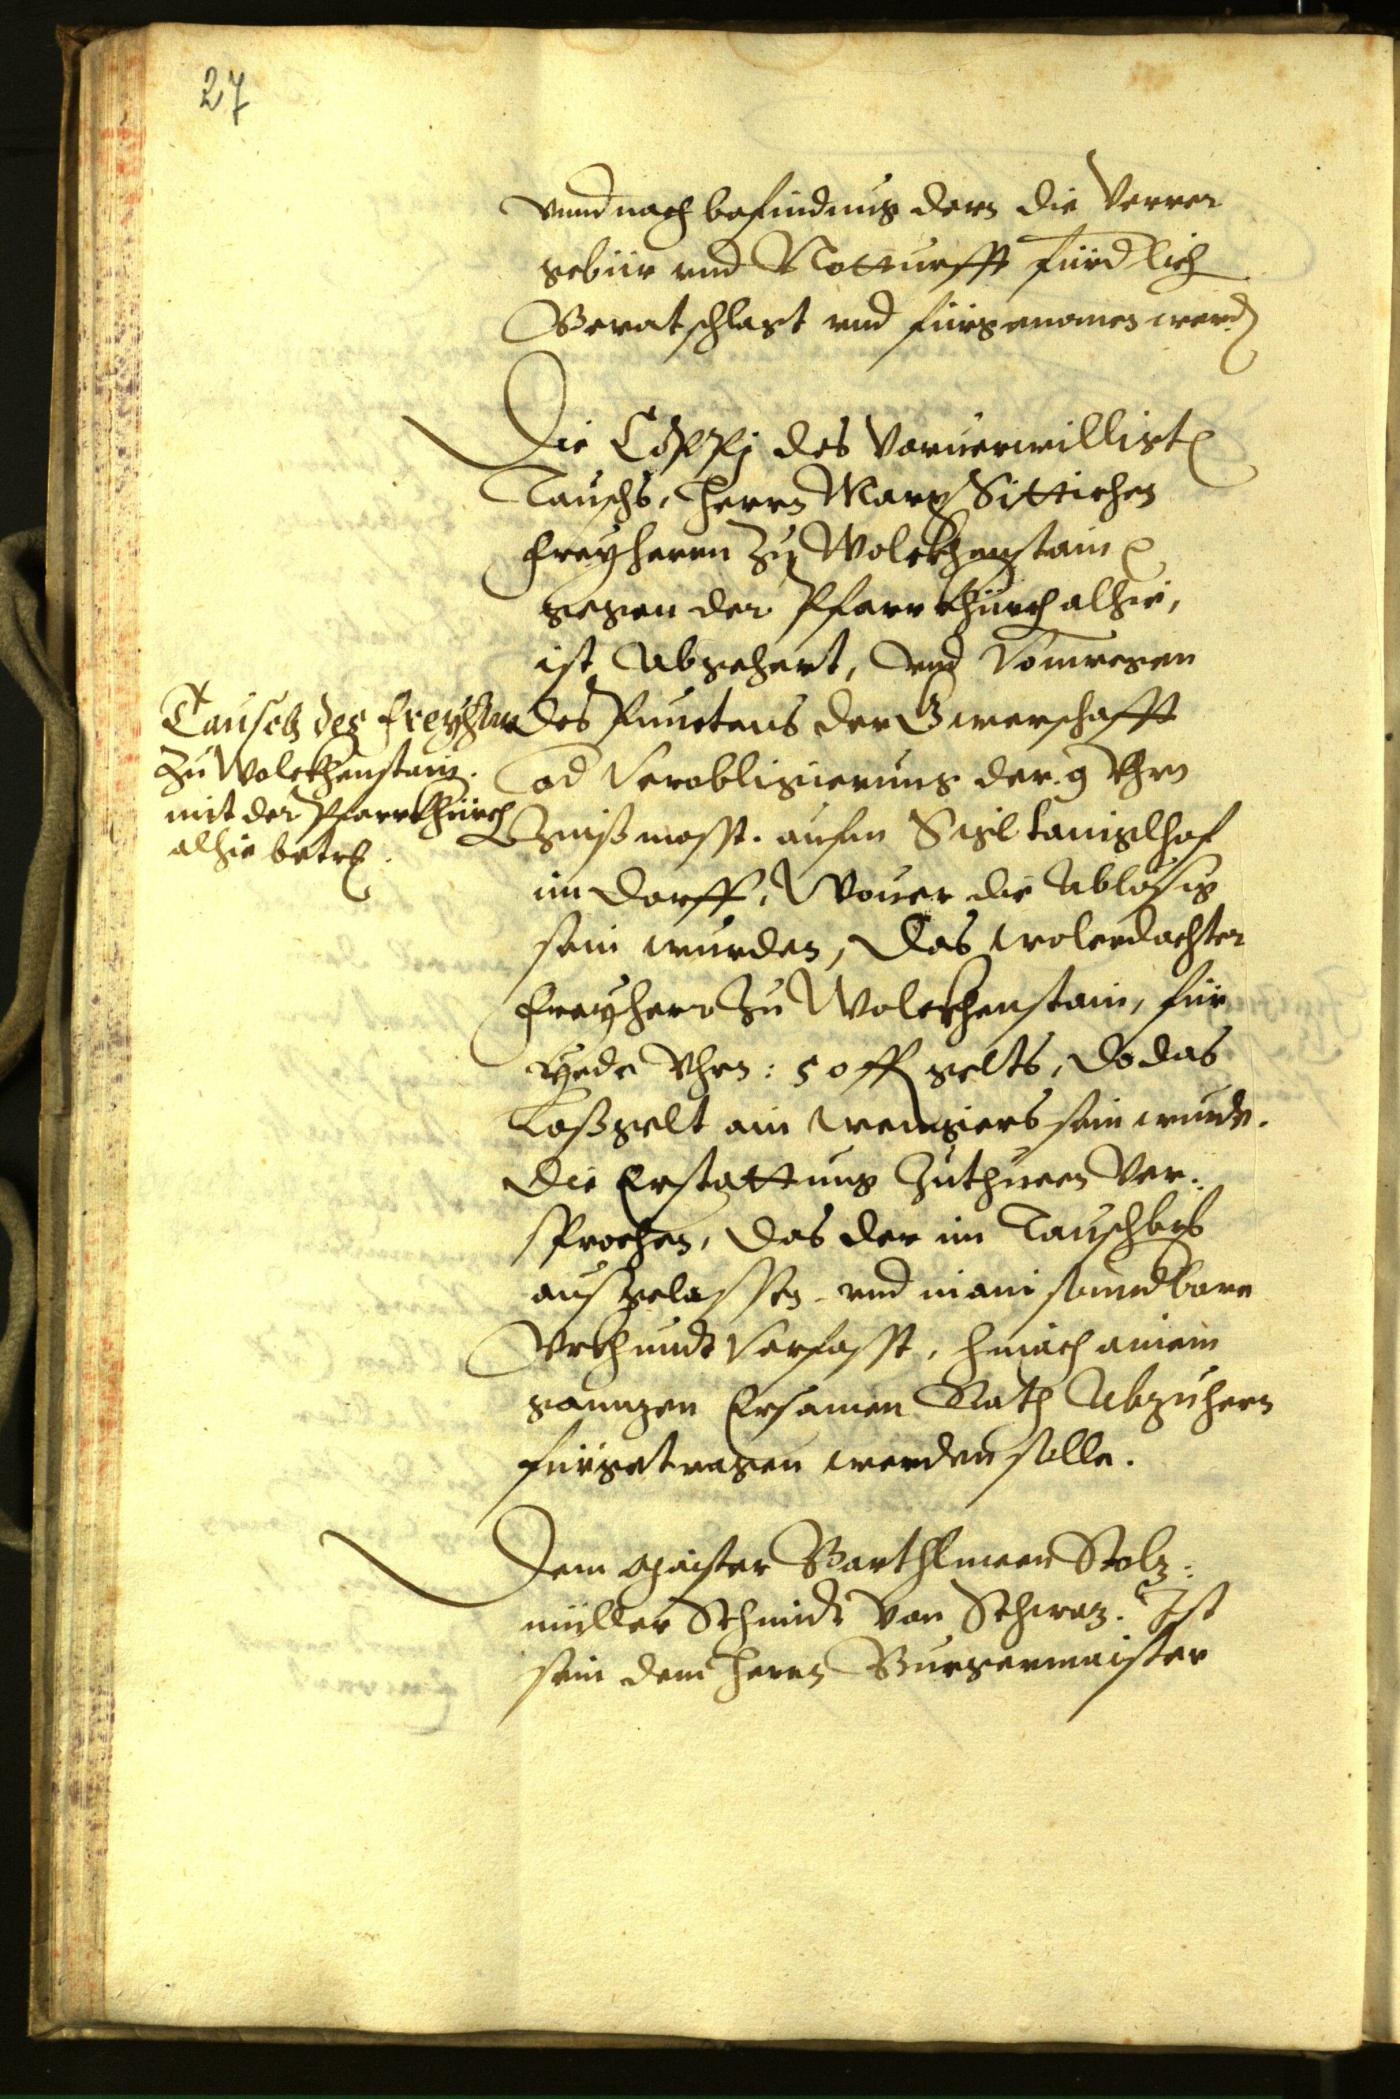 27
vnnd nach befindung dern die Verrer
gebür vnd Notturfft fürdlich
Beratschlagt vnd fürgenomen werd
Die Coppj des Vorverwilligt
Tauschs, Herrn Marx Sittichen
Freyherrn zu Wolckhenstain
gegen der Pfarrkhürch alhie,
ist Abgehert, Und Vonwegen
des Punctens der Gwerschafft
od Verobligierung der 9 Yhrn
mosst. aufm Sigl hof
im Dorff, Wouer die Ablösig
sein wurden, Das wolerdachter
Freyherr zu Wolckhenstain, für
yede Yhrn: 50 ff gelts, do das
Loßgelt ain wenigers sein wurde.
die Erstattung zuthuen Ver:
sprochen, Das der im Tauschbrf
ausgelassen, vnd in ain sonndbare
Vrkhundt Verfasst, hinach ainem
ganntzen Ersamen Rath Abzuhern
fürgetragen werden solle.
Tausch des Freyherrn
zu Wolckhenstain
mit der Pfarrkhürch
alhie betr.
Dem Maister Barthlmeen Stolz:
müller Schmidt von Schwaz. Ist
sein dem Herrn Burgermaister